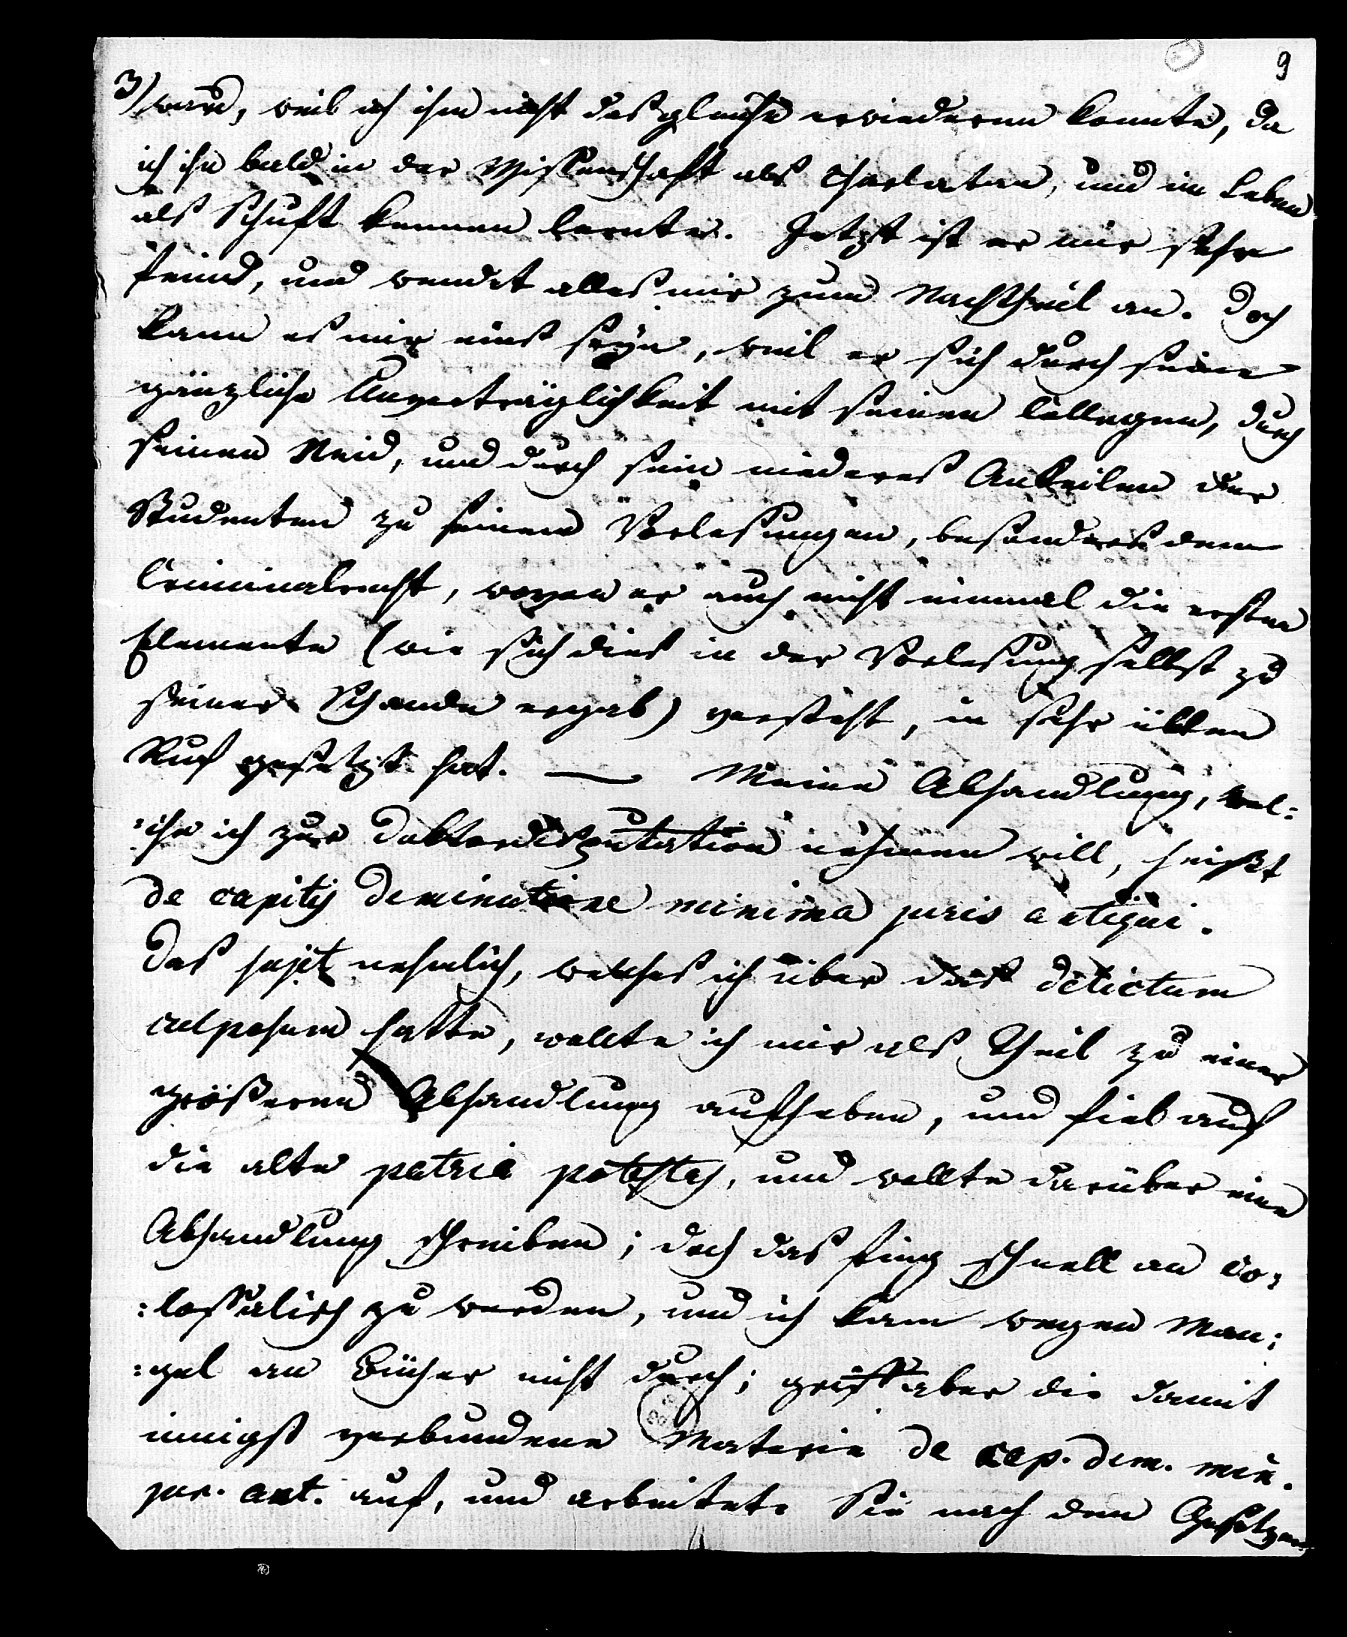 9
3) ward, weil ich ihm nicht das gleiche erwiedernn konnte, da
ich ihn bald in der Wissenschaft als Charlatan, und im Leben
als Schuft kennen lernte. Jetzt ist er mir sehr
feind, und wendet alles mir zum Nachtheil an. Doch
kann es mir eins seyn, weil er sich durch seine
gänzliche Unverträglichkeit mit seinen Collegen, durch
seinen Neid, und durch sein niederes Ankeilen der
Studenten zu seinen Vorlesungen, besonders dem
Criminalrecht, wovon er auch nicht einmal die ersten
Elemente (wie sich dies in der Vorlesung selbst zu
seiner Schande ergab) versteht, in sehr üblen
Ruf gesetzt hat. — Meine Abhandlung, wel=
=che ich zur Doktordisputation nehmen will, heißt
de capitis deminutione minima juris antiqui.
Das sujet nehmlich, welches ich über das delictum
culposum hatte, wollte ich mir als Theil zu einer
größeren Abhandlung aufheben, und fiel auf
die alte patria potestas, und wollte darüber eine
Abhandlung schreiben; doch das fing schnell an co=
=lossalisch zu werden, und ich kam wegen Man=
=gel an Bücher nicht durch; griff aber die damit
innigst verbundene Materie de cap. dem. min.
jur. ant. auf, und arbeitete Sie nach den Gesetzen